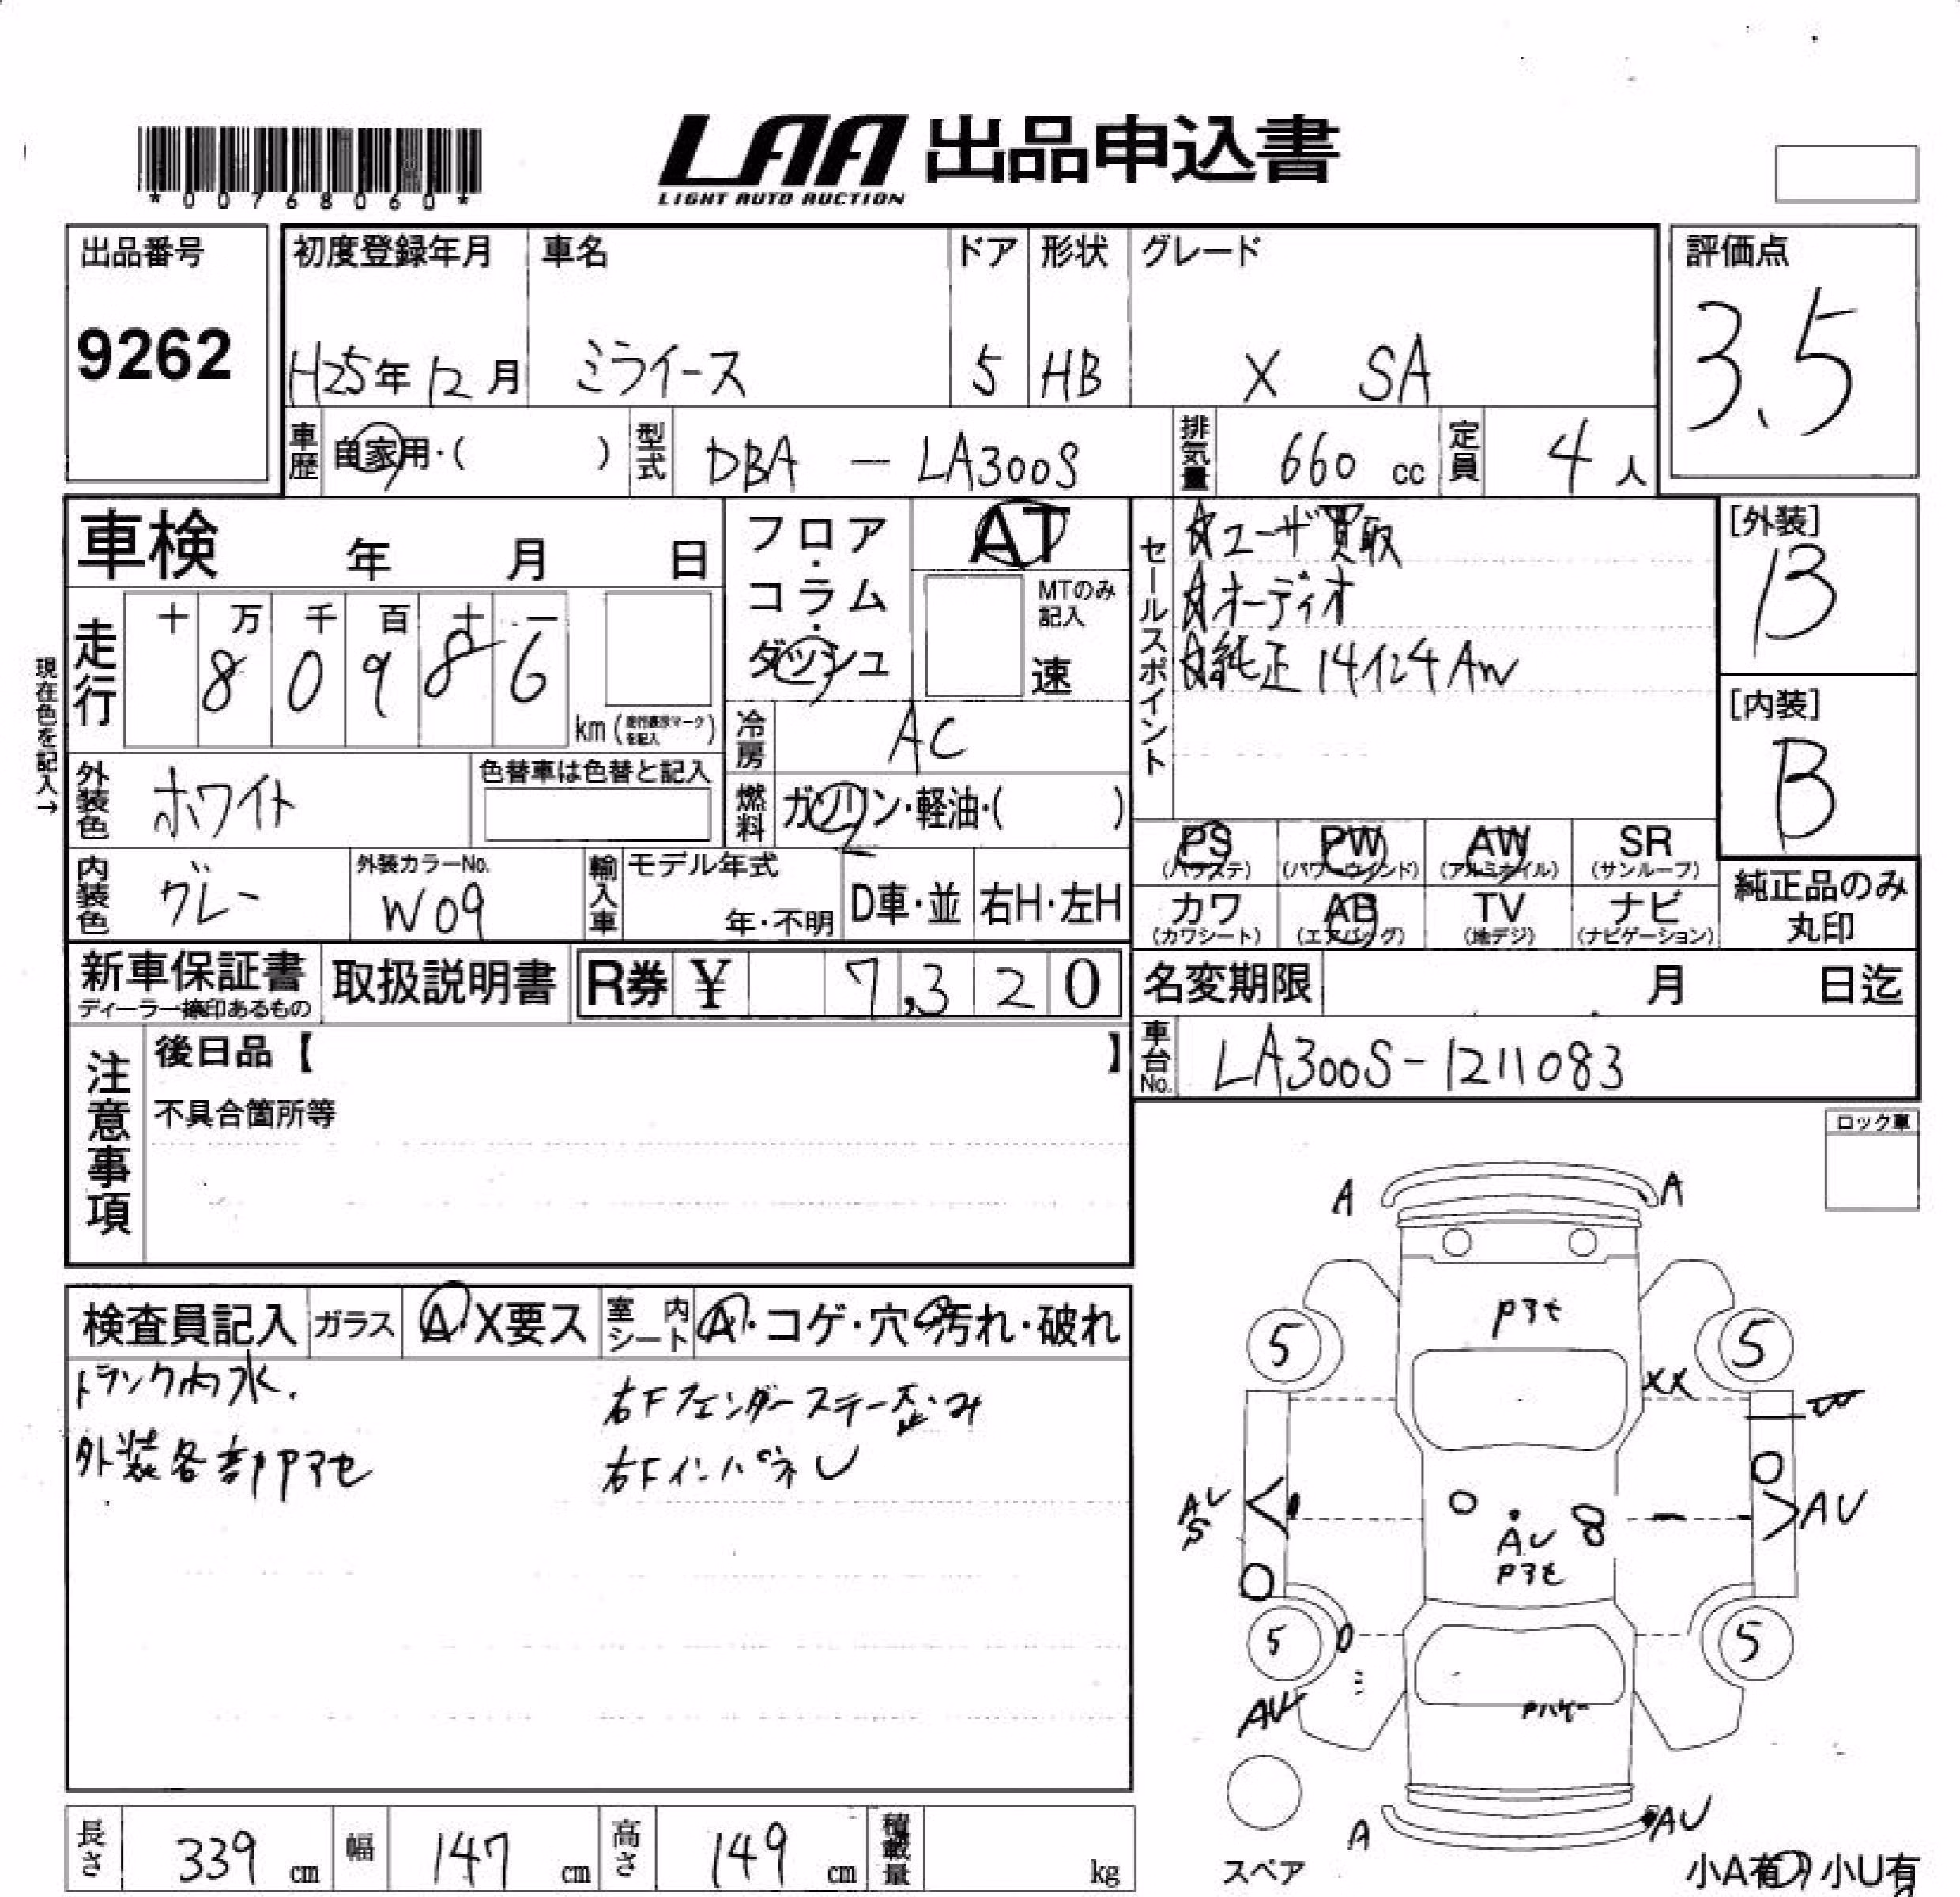 *00768060*
LAA 出品申込書
LIGHT AUTO AUCTION
出品番号
9262
初度登録年月 車名 ドア 形状 グレード
H25年12月 ミライース 5 HB X SA
評価点
3.5
車歴 自家用・( ) 型式 DBA - LA300S 排気量 660 cc 定員 4 人
車検 年 月 日
フロア・コラム・ダッシュ
AT
MTのみ記入
速
セールスポイント
☆ユーザ買取
☆オーディオ
☆純正14インチAW
[外装]
B
[内装]
B
現在色を記入→
走行 十 万 千 百 十 一
8 0 9 8 6
km (走行表示マークを記入)
冷房 AC
外装色 ホワイト 色替車は色替と記入
燃料 ガソリン・軽油・( )
内装色 グレー 外装カラーNo. W09
輸入車 モデル年式 年・不明 D車・並 右H・左H
PS PW AW SR
(パワステ) (パワーウインド) (アルミホイル) (サンルーフ)
カワ AB TV ナビ
(カワシート) (エアバッグ) (地デジ) (ナビゲーション)
純正品のみ丸印
新車保証書
ディーラー捺印あるもの
取扱説明書 R券 ¥ 7,320
名変期限 月 日迄
車台No. LA300S-1211083
注意事項
後日品【 】
不具合箇所等
ロック車
検査員記入 ガラス A・X要ス 室内シート A・コゲ・穴・汚れ・破れ
トランク内水.
外装各部Pアセ
右Fフェンダーステー歪み
右FインパネU
A A
Pアセ
5 5
XX
AU
S
AU
AU
Pアセ
5 5
AU
Pハゲ
A AU
スペア
小A有 小U有
長さ 339 cm 幅 147 cm 高さ 149 cm 積載量 kg